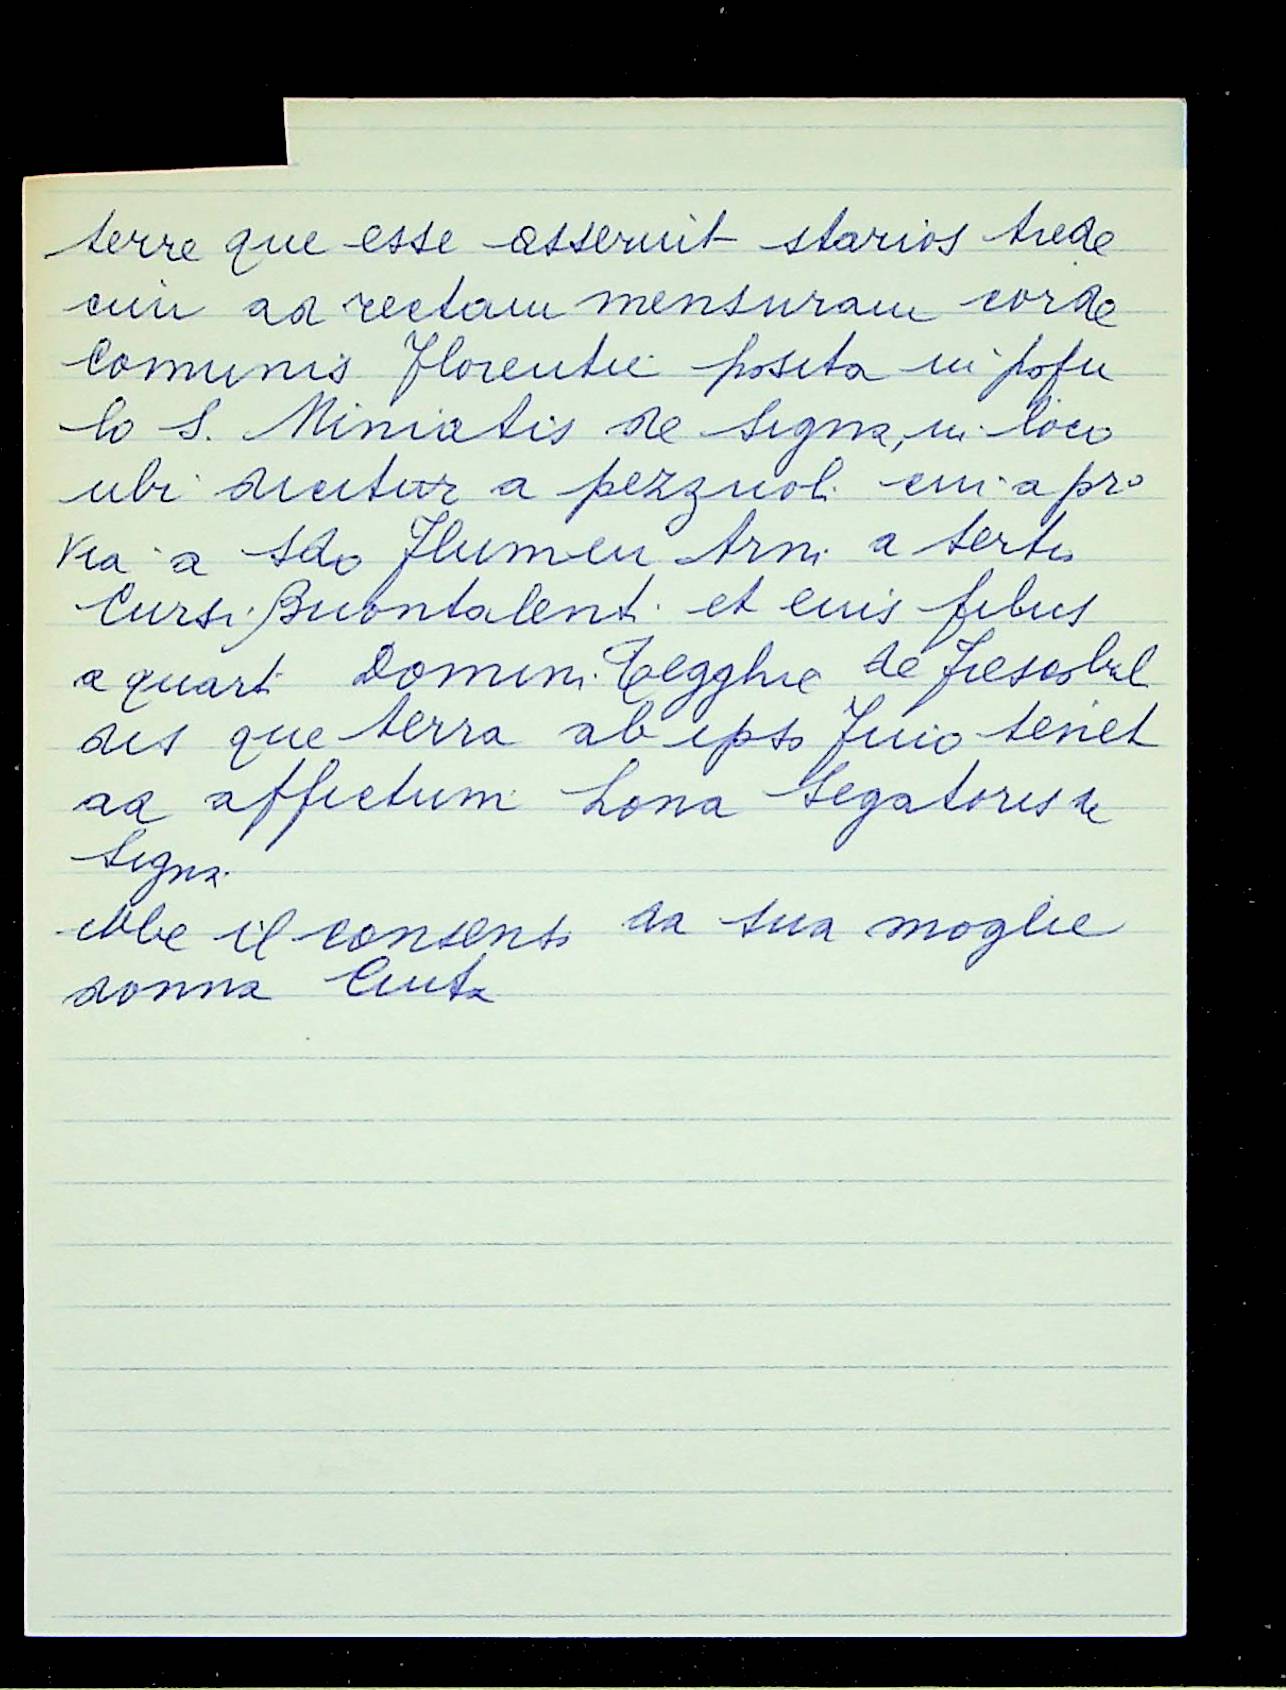 terre que esse asseruit starios trede
cim ad rectam mensuram corde
Comunis Florentie posita in popu
lo S. Miniatis de Signa, in loco
ubi dicitur a pezzuoli cui a pro
via a sdo Flumen Arni a tertio
Cursi Buontalenti et eius filius
a quarti Domini Tegghie de Frescobal
dis que terra ab ipso Juio tenet
ad affictum Lona Segatoris de
Signa.
ebbe il consenso da sua moglie
donna Ciuta